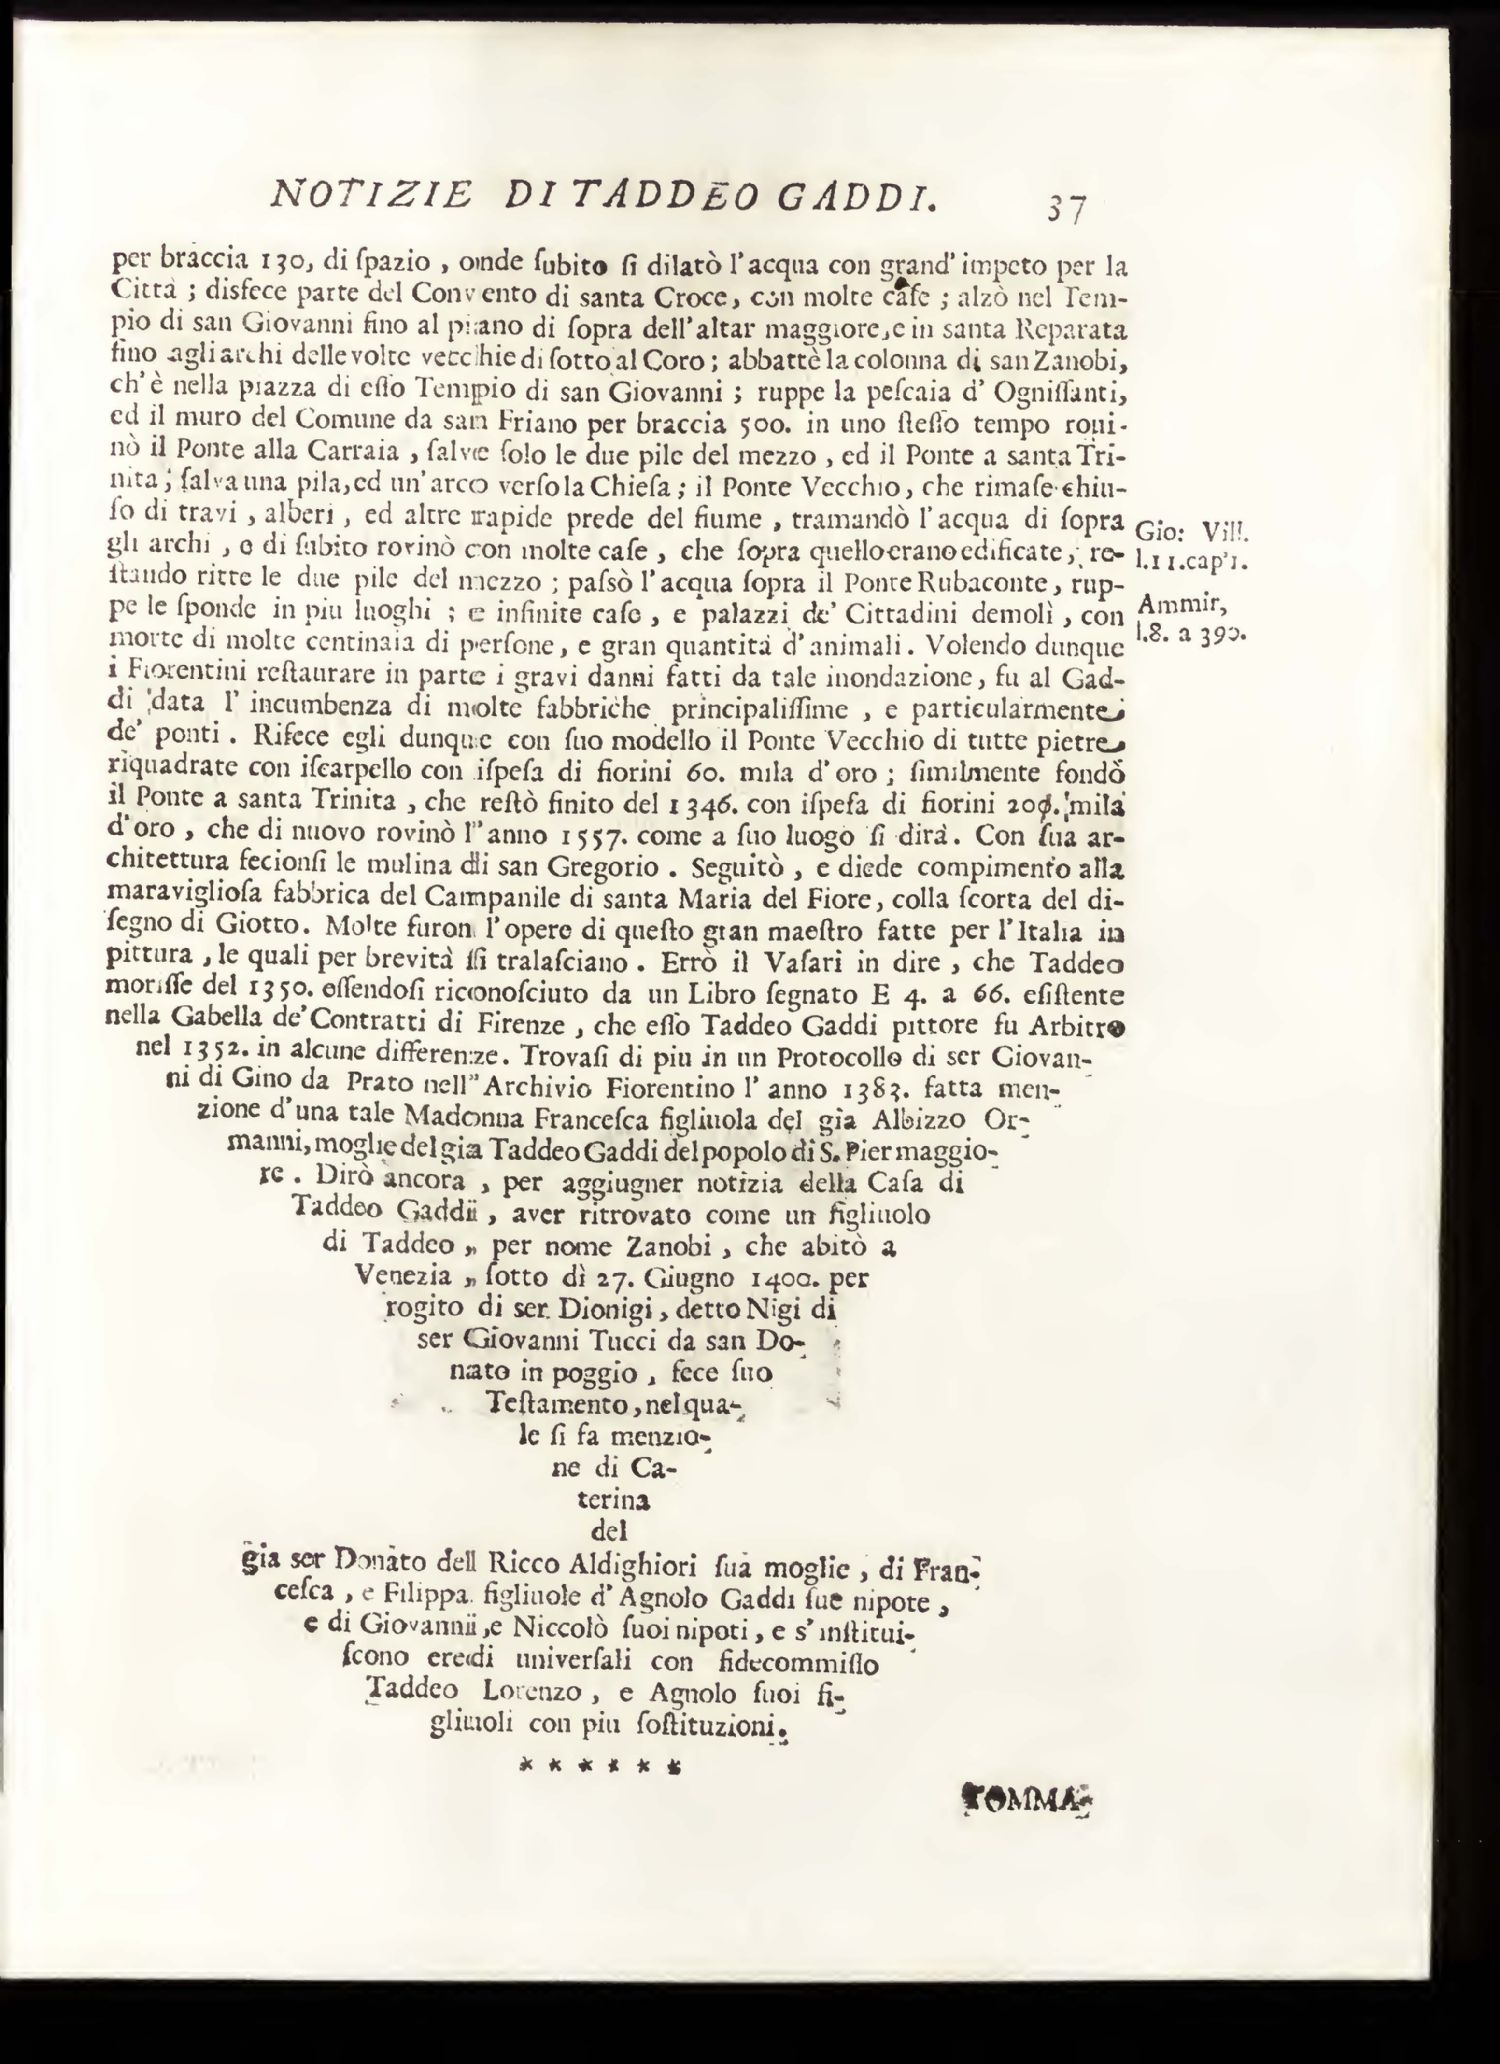 NOTIZIE DI TADDEO GADDI. 37
per braccia 130, di ſpazio, onde ſubito ſi dilatò l'acqua con grand' impeto per la
Città; disfece parte del Convento di santa Croce, con molte caſe; alzò nel Tem-
pio di san Giovanni fino al piano di ſopra dell'altar maggiore, e in santa Reparata
fino agli archi delle volte vecchie di ſotto al Coro; abbattè la colonna di san Zanobi,
ch'è nella piazza di eſſo Tempio di san Giovanni; ruppe la peſcaia d' Ogniſſanti,
ed il muro del Comune da san Friano per braccia 500. in uno ſteſſo tempo roui-
nò il Ponte alla Carraia, ſalve ſolo le due pile del mezzo, ed il Ponte a santa Tri-
nita, ſalva una pila, ed un'arco verſo la Chieſa; il Ponte Vecchio, che rimaſe chiu-
ſo di travi, alberi, ed altre rapide prede del fiume, tramandò l'acqua di ſopra
gli archi, e di ſubito rovinò con molte caſe, che ſopra quello erano edificate, re-
ſtando ritte le due pile del mezzo; paſsò l'acqua ſopra il Ponte Rubaconte, rup-
pe le ſponde in piu luoghi; e infinite caſe, e palazzi de' Cittadini demolì, con
morte di molte centinaia di perſone, e gran quantità d'animali. Volendo dunque
i Fiorentini reſtaurare in parte i gravi danni fatti da tale inondazione, fu al Gad-
di data l' incumbenza di molte fabbriche principaliſſime, e particularmente
de' ponti. Rifece egli dunque con ſuo modello il Ponte Vecchio di tutte pietre
riquadrate con iſcarpello con iſpeſa di fiorini 60. mila d'oro; ſimilmente fondò
il Ponte a santa Trinita, che reſtò finito del 1346. con iſpeſa di fiorini 20. mila
d'oro, che di nuovo rovinò l'anno 1557. come a ſuo luogo ſi dirà. Con ſua ar-
chitettura fecionſi le mulina di san Gregorio. Seguitò, e diede compimento alla
maraviglioſa fabbrica del Campanile di santa Maria del Fiore, colla ſcorta del di-
ſegno di Giotto. Molte furon l'opere di queſto gran maeſtro fatte per l'Italia in
pittura, le quali per brevità ſi tralaſciano. Errò il Vaſari in dire, che Taddeo
moriſſe del 1350. eſſendoſi riconoſciuto da un Libro ſegnato E 4. a 66. eſiſtente
nella Gabella de' Contratti di Firenze, che eſſo Taddeo Gaddi pittore fu Arbitro
nel 1352. in alcune differenze. Trovaſi di piu in un Protocollo di ser Giovan-
ni di Gino da Prato nell' Archivio Fiorentino l' anno 1383. fatta men-
zione d'una tale Madonna Franceſca figliuola del già Albizzo Or-
manni, moglie del gia Taddeo Gaddi del popolo di S. Pier maggio-
re. Dirò ancora, per aggiugner notizia della Caſa di
Taddeo Gaddi, aver ritrovato come un figliuolo
di Taddeo, per nome Zanobi, che abitò a
Venezia, ſotto dì 27. Giugno 1400. per
rogito di ser Dionigi, detto Nigi di
ser Giovanni Tucci da san Do-
nato in poggio, fece ſuo
Teſtamento, nel qua-
le ſi fa menzio-
ne di Ca-
terina
del
gia ser Donato dell Ricco Aldighiori ſua moglie, di Fran-
ceſca, e Filippa figliuole d' Agnolo Gaddi ſue nipote,
e di Giovanni, e Niccolò ſuoi nipoti, e s' inſtitui-
ſcono eredi univerſali con fidecommiſſo
Taddeo Lorenzo, e Agnolo ſuoi fi-
gliuoli con piu ſoſtituzioni.
* * * * * *
TOMMA-
Gio: Vill.
l.11.cap'1.
Ammir,
l.8. a 390.